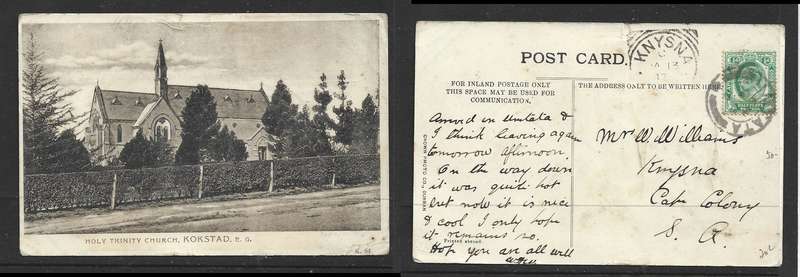 HOLY TRINITY CHURCH, KOKSTAD, E. G.
POST CARD.
KNYSNA
FOR INLAND POSTAGE ONLY
THIS SPACE MAY BE USED FOR
COMMUNICATION.
THE ADDRESS ONLY TO BE WRITTEN HERE
Arrived in Umtata &
I think leaving again
tomorrow afternoon.
On the way down
it was quite hot
but now it is nice
& cool I only hope
it remains so.
Hope you are all well
Printed abroad.
Mr W. Williams
Knysna
Cape Colony
S. A.